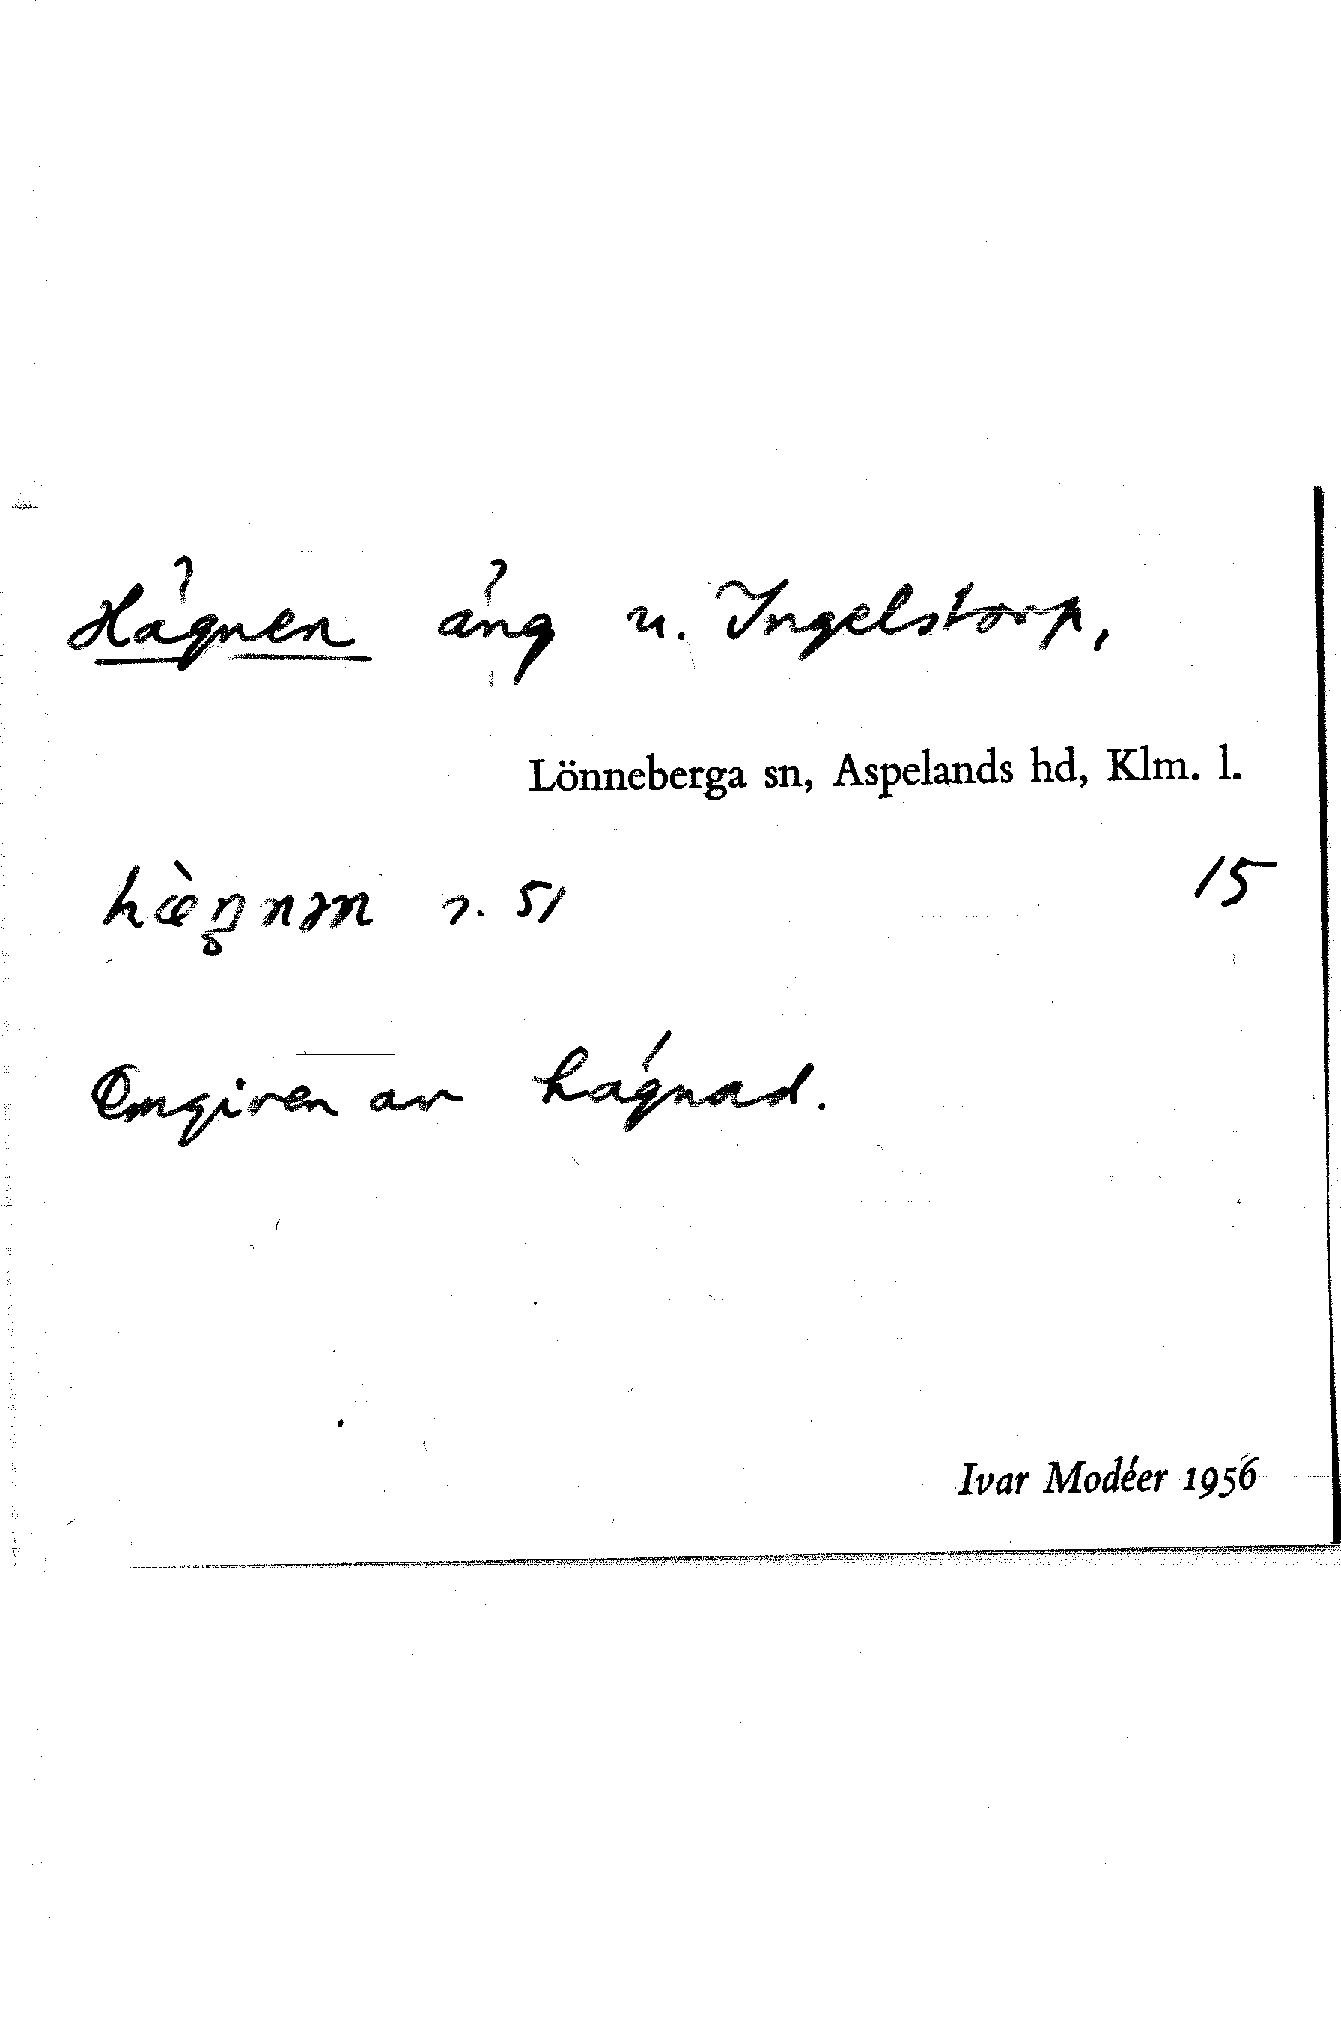 Hägnen äng u. Ingelstorp,
Lönneberga sn, Aspelands hd, Klm. l.
15
s. 51
Omgiven av hägnad.
Ivar Modéer 1956